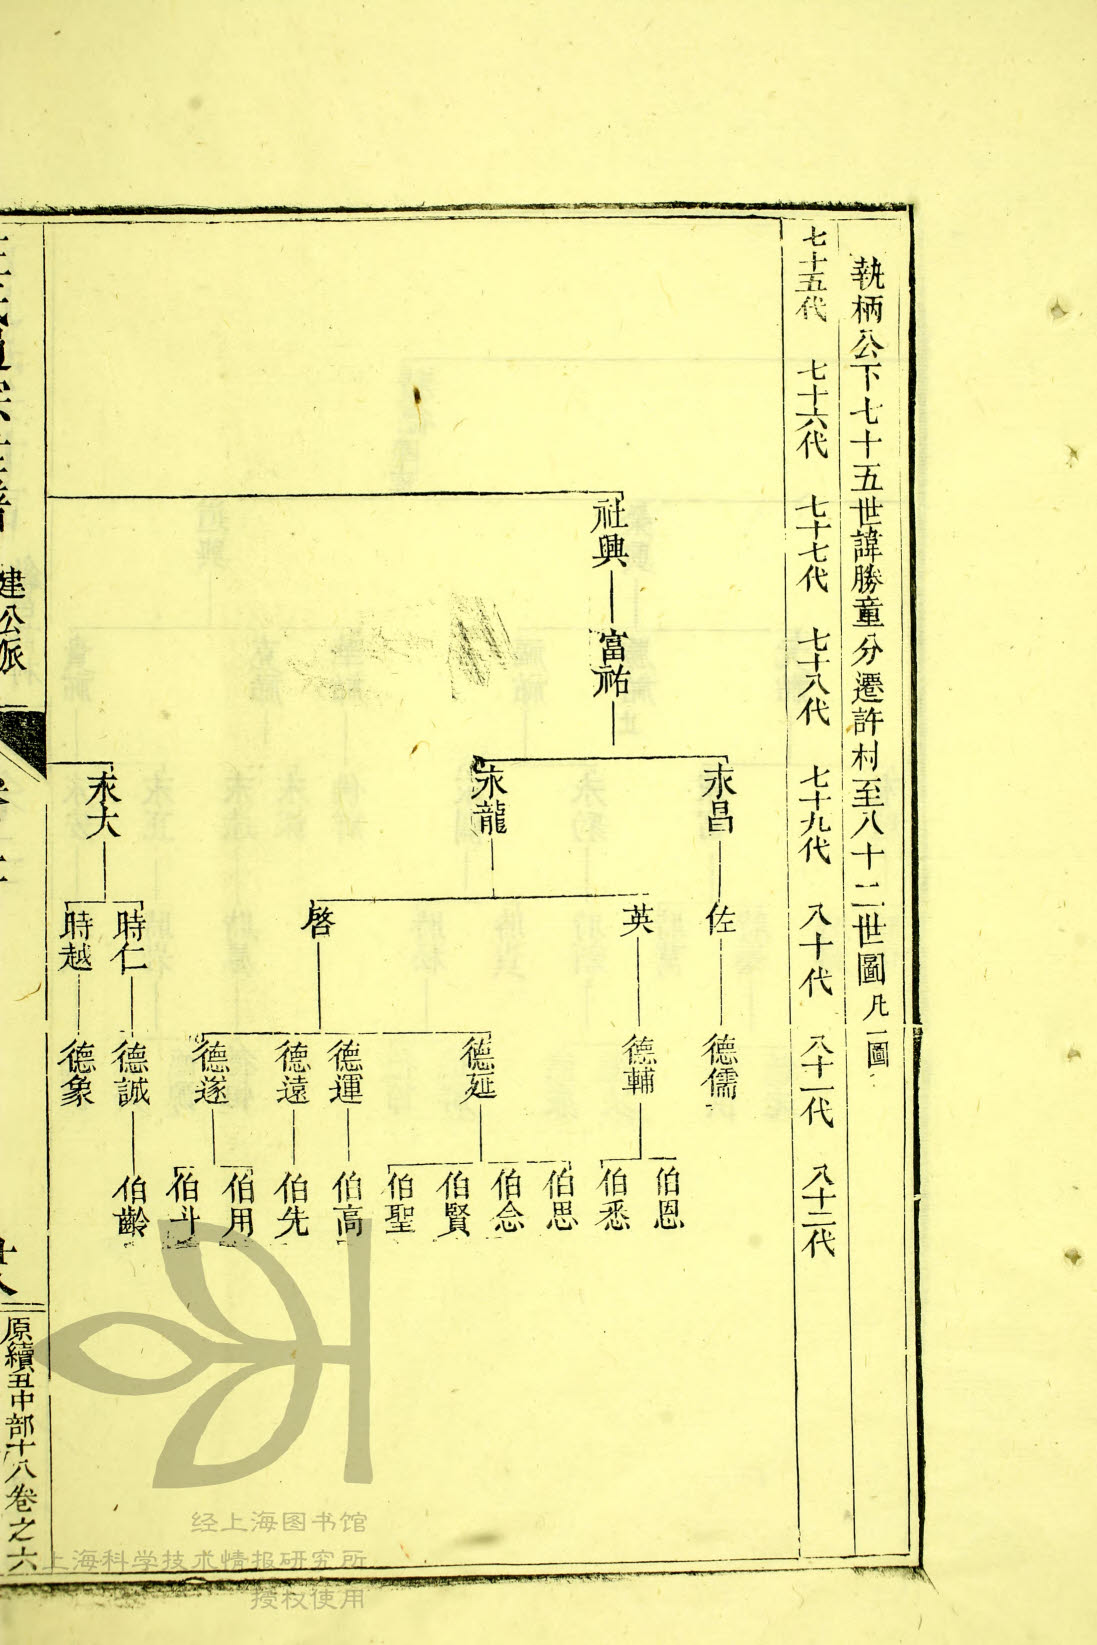 執柄公下七十五世諱勝童分遷許村至八十二世圖凡一圖
七十五代 七十六代 七十七代 七十八代 七十九代 八十代 八十一代 八十二代
社興
富祐
永昌 永龍 永大
佐 英 啓 時仁 時越
德儒 德輔 德延 德運 德遠 德遂 德誠 德象
伯恩 伯悉 伯思 伯念 伯賢 伯聖 伯高 伯先 伯用 伯斗 伯齡
建公派
原續五中部十八卷之六
经上海图书馆
上海科学技术情报研究所
授权使用